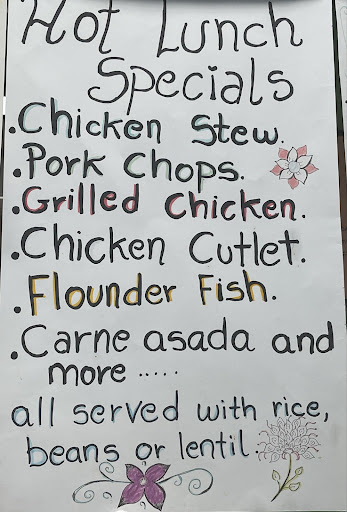 Hot Lunch
Specials
.Chicken Stew.
.Pork Chops.
.Grilled Chicken.
.Chicken Cutlet.
.Flounder Fish.
.Carne asada and
more .....
all served with rice,
beans or lentil.